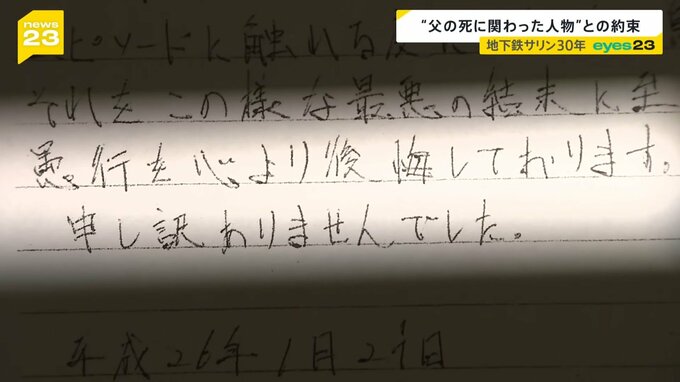 news
23
“父の死に関わった人物”との約束
地下鉄サリン30年 eyes23
ピソードに触れる度に
それをこの様な最悪の結末に至
愚行を心より後悔しております。
申し訳ありませんでした。
平成26年1月21日